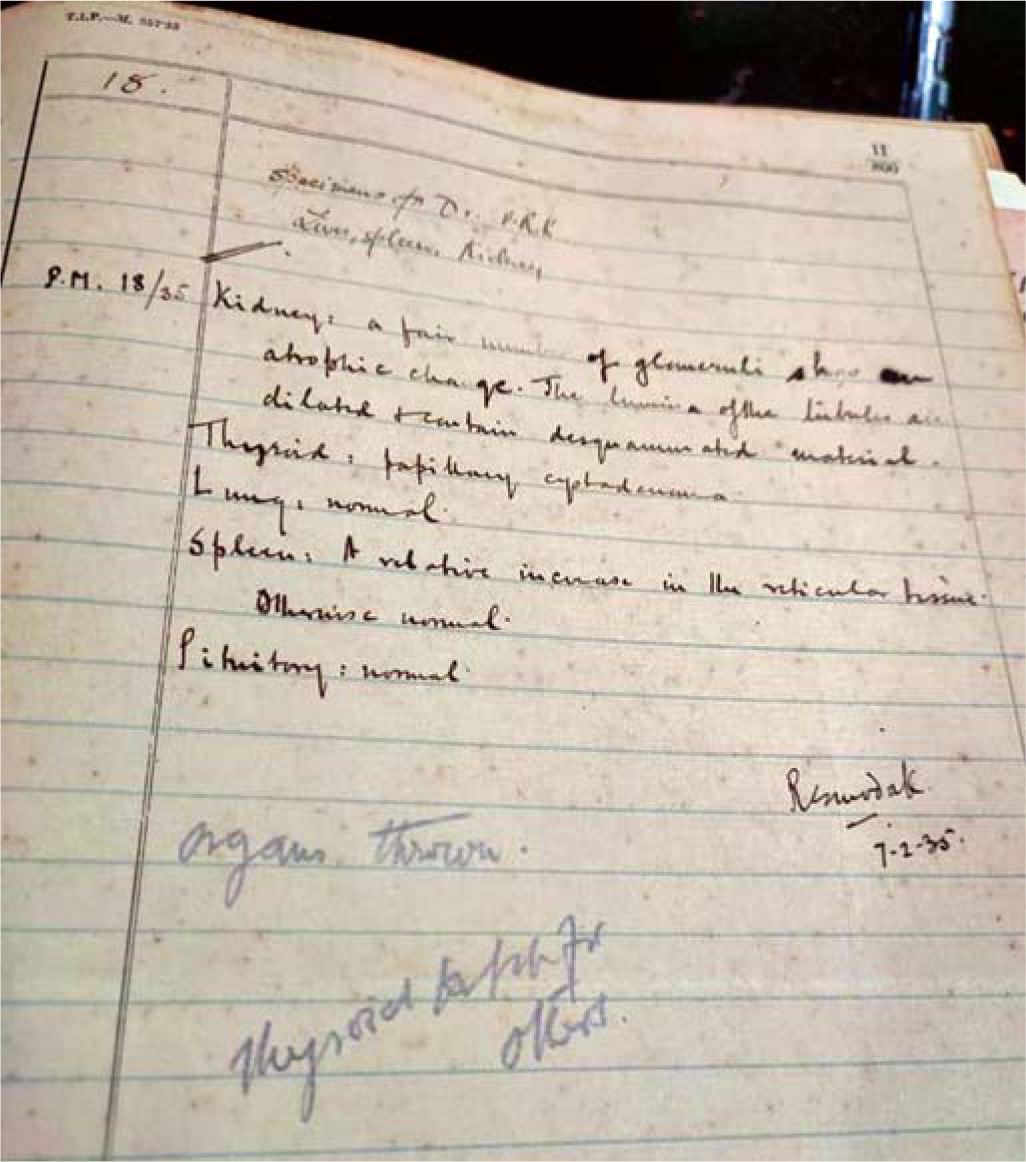 T.I.P.—M.
18.
11
800
Specimens for Dr. V.R.K
Liver, spleen, Kidney
P.M. 18/35 Kidney: a fair number of glomeruli show an
atrophic change. The lumina of the tubules are
dilated & contain desquammated material.
Thyroid: papillary cystadenoma
Lung: normal.
Spleen: A relative increase in the reticular tissue.
Otherwise normal.
Pituitory: normal
7-2-35.
organs thrown.
Thyroid kept for
others.